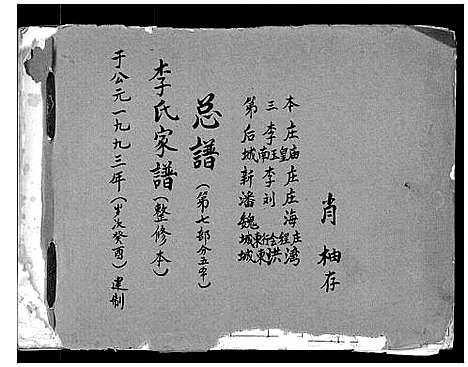 肖柚存
本庄皇庙庄庄海程庄湾
三李南王李刘行会洪
第后城新潘魏城东城东
总谱（第七部分五字）
李氏家谱（整修本）
于公元一九九三年（岁次癸酉）建制